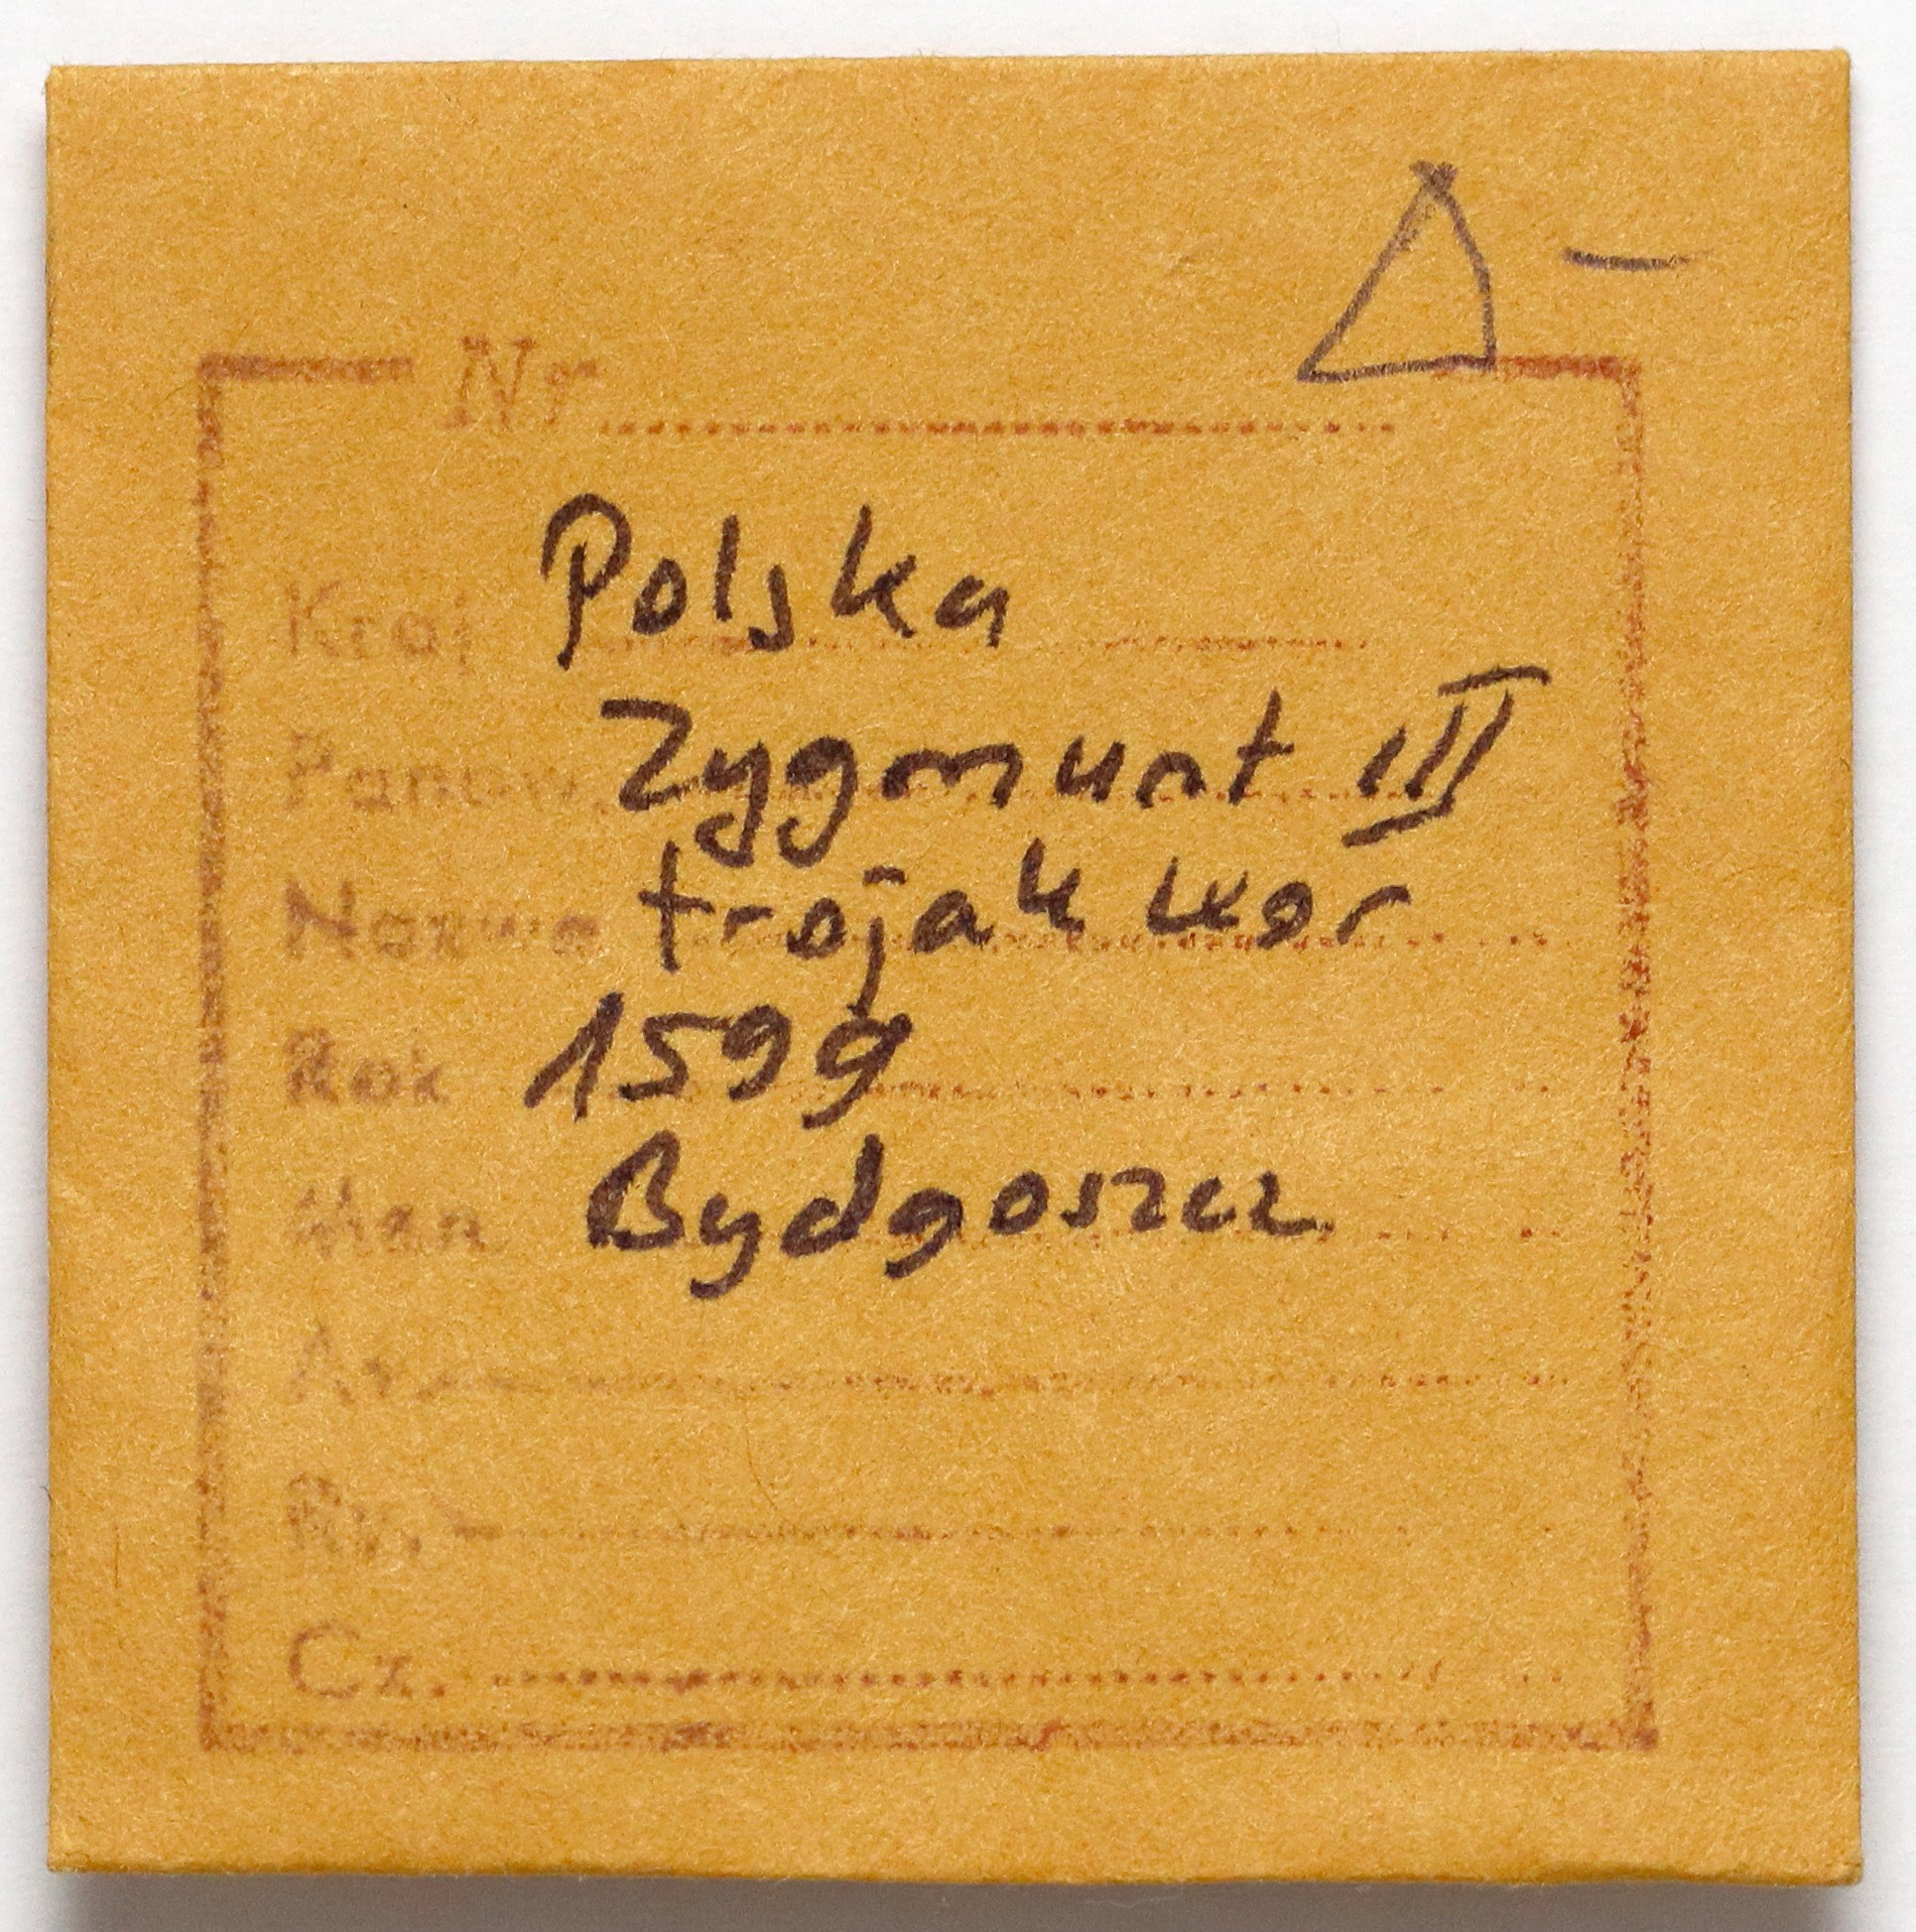 Nr
Kraj Polska
Panow. Zygmunt III
Nazwa trojak kor
Rok 1599
Men Bydgoszcz
Av.
Rv.
Cz.